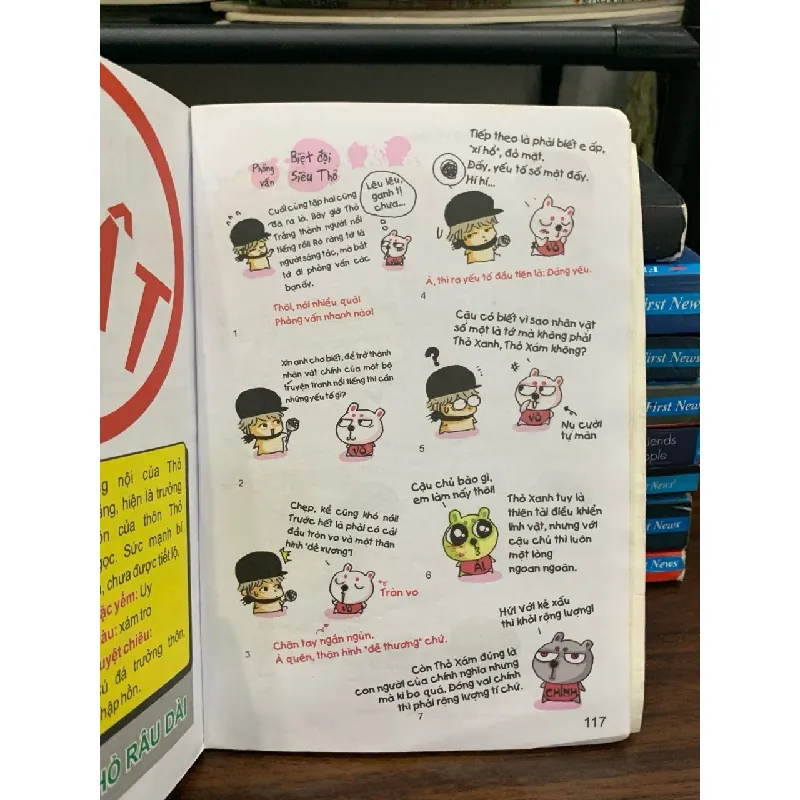 Phỏng vấn
Biệt đội
Siêu Thỏ
Cuối cùng tập hai cũng
đã ra lò. Bây giờ Thỏ
Trắng thành người nổi
tiếng rồi! Rõ ràng tớ là
người sáng tác, mà bắt
tớ đi phỏng vấn các
bạn ấy.
Lêu lêu,
ganh tị
chưa...
Thôi, nói nhiều quá!
Phỏng vấn nhanh nào!
1
Xin anh cho biết, để trở thành
nhân vật chính của một bộ
truyện tranh nổi tiếng thì cần
những yếu tố gì?
VÔ
2
Chẹp, kể cũng khó nói!
Trước hết là phải có cái
đầu tròn vo và một thân
hình "dễ xương"!
VÔ
Tròn vo
Chân tay ngắn ngủn.
À quên, thân hình "dễ thương" chứ.
3
Tiếp theo là phải biết e ấp,
"xí hổ", đỏ mặt.
Đấy, yếu tố số một đấy.
Hí hí...
VÔ
À, thì ra yếu tố đầu tiên là: Đáng yêu.
4
Cậu có biết vì sao nhân vật
số một là tớ mà không phải
Thỏ Xanh, Thỏ Xám không?
?
VÔ
Nụ cười
tự mãn
5
Cậu chủ bảo gì,
em làm nấy thôi!
ÁI
Thỏ Xanh tuy là
thiên tài điều khiển
linh vật, nhưng với
cậu chủ thì luôn
một lòng
ngoan ngoãn.
6
Hứ! Với kẻ xấu
thì khỏi rộng lượng!
CHÍNH
Còn Thỏ Xám đúng là
con người của chính nghĩa nhưng
mà ki bo quá. Đóng vai chính
thì phải rộng lượng tí chứ.
7
117
ẬT
g nội của Thỏ
ắng, hiện là trưởng
ôn của thôn Thỏ
gọc. Sức mạnh bí
, chưa được tiết lộ.
ặc yếm: Uy
àu: xám tro
uyệt chiêu:
ủ đá trưởng thôn,
hập hồn.
HỎ RÂU DÀI
First News
First News
First News
riends
ople
News
News
News